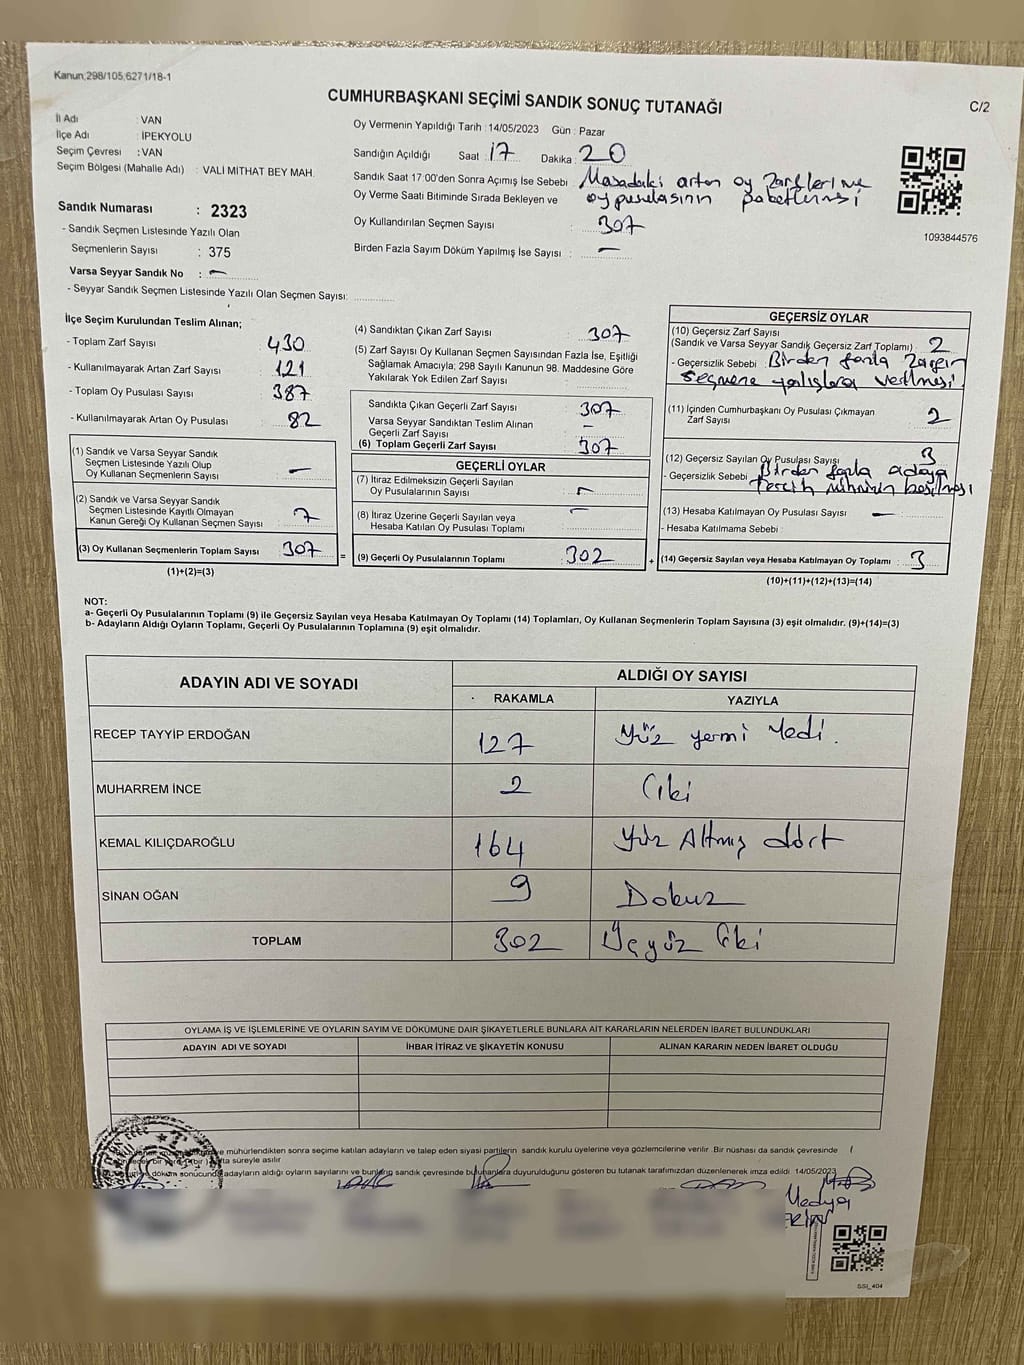 Kanun;298/105;6271/18-1
CUMHURBAŞKANI SEÇİMİ SANDIK SONUÇ TUTANAĞI
C/2
İl Adı : VAN
İlçe Adı : İPEKYOLU
Seçim Çevresi : VAN
Seçim Bölgesi (Mahalle Adı) : VALİ MİTHAT BEY MAH.
Sandık Numarası : 2323
- Sandık Seçmen Listesinde Yazılı Olan
Seçmenlerin Sayısı : 375
Varsa Seyyar Sandık No : -
- Seyyar Sandık Seçmen Listesinde Yazılı Olan Seçmen Sayısı:
Oy Vermenin Yapıldığı Tarih : 14/05/2023 Gün : Pazar
Sandığın Açıldığı Saat : 17 Dakika : 20
Sandık Saat 17:00'den Sonra Açımış İse Sebebi : Masadaki artan oy zarfleri ve
Oy Verme Saati Bitiminde Sırada Bekleyen ve oy pusulasının paketlemesi
Oy Kullandırılan Seçmen Sayısı : 307
Birden Fazla Sayım Döküm Yapılmış İse Sayısı : -
1093844576
İlçe Seçim Kurulundan Teslim Alınan;
- Toplam Zarf Sayısı 430
- Kullanılmayarak Artan Zarf Sayısı : 121
- Toplam Oy Pusulası Sayısı : 387
- Kullanılmayarak Artan Oy Pusulası : 82
(1) Sandık ve Varsa Seyyar Sandık
Seçmen Listesinde Yazılı Olup
Oy Kullanan Seçmenlerin Sayısı : -
(2) Sandık ve Varsa Seyyar Sandık
Seçmen Listesinde Kayıtlı Olmayan
Kanun Gereği Oy Kullanan Seçmen Sayısı : 7
(3) Oy Kullanan Seçmenlerin Toplam Sayısı : 307
(1)+(2)=(3)
=
(4) Sandıktan Çıkan Zarf Sayısı : 307
(5) Zarf Sayısı Oy Kullanan Seçmen Sayısından Fazla İse, Eşitliği
Sağlamak Amacıyla; 298 Sayılı Kanunun 98. Maddesine Göre
Yakılarak Yok Edilen Zarf Sayısı :
Sandıkta Çıkan Geçerli Zarf Sayısı : 307
Varsa Seyyar Sandıktan Teslim Alınan
Geçerli Zarf Sayısı : -
(6) Toplam Geçerli Zarf Sayısı : 307
GEÇERLİ OYLAR
(7) İtiraz Edilmeksizin Geçerli Sayılan
Oy Pusulalarının Sayısı : -
(8) İtiraz Üzerine Geçerli Sayılan veya
Hesaba Katılan Oy Pusulası Toplamı : -
(9) Geçerli Oy Pusulalarının Toplamı : 302
+
GEÇERSİZ OYLAR
(10) Geçersiz Zarf Sayısı
(Sandık ve Varsa Seyyar Sandık Geçersiz Zarf Toplamı) : 2
- Geçersizlik Sebebi : Birden fazla zarfın
seçmene yalışlara verilmesi
(11) İçinden Cumhurbaşkanı Oy Pusulası Çıkmayan
Zarf Sayısı : 2
(12) Geçersiz Sayılan Oy Pusulası Sayısı : 3
- Geçersizlik Sebebi : Birden fazla adaya
tercih mührünün basılması
(13) Hesaba Katılmayan Oy Pusulası Sayısı : -
- Hesaba Katılmama Sebebi :
(14) Geçersiz Sayılan veya Hesaba Katılmayan Oy Toplamı : 3
(10)+(11)+(12)+(13)=(14)
NOT:
a- Geçerli Oy Pusulalarının Toplamı (9) ile Geçersiz Sayılan veya Hesaba Katılmayan Oy Toplamı (14) Toplamları, Oy Kullanan Seçmenlerin Toplam Sayısına (3) eşit olmalıdır. (9)+(14)=(3)
b- Adayların Aldığı Oyların Toplamı, Geçerli Oy Pusulalarının Toplamına (9) eşit olmalıdır.
ADAYIN ADI VE SOYADI
ALDIĞI OY SAYISI
RAKAMLA YAZIYLA
RECEP TAYYİP ERDOĞAN 127 Yüz yermi Yedi.
MUHARREM İNCE 2 İki
KEMAL KILIÇDAROĞLU 164 Yüz Altmış dört
SİNAN OĞAN 9 Dokuz
TOPLAM 302 Üçyüz İki
OYLAMA İŞ VE İŞLEMLERİNE VE OYLARIN SAYIM VE DÖKÜMÜNE DAİR ŞİKAYETLERLE BUNLARA AİT KARARLARIN NELERDEN İBARET BULUNDUKLARI
ADAYIN ADI VE SOYADI İHBAR İTİRAZ VE ŞİKAYETİN KONUSU ALINAN KARARIN NEDEN İBARET OLDUĞU
mühürlendikten sonra seçime katılan adayların ve talep eden siyasi partilerin sandık kurulu üyelerine veya gözlemcilerine verilir .Bir nüshası da sandık çevresinde
süreyle asılır
döküm sonucunda adayların aldığı oyların sayılarını ve bunların sandık çevresinde bulunanlara duyurulduğunu gösteren bu tutanak tarafımızdan düzenlenerek imza edildi. 14/05/2023
Medya
SSİ_404